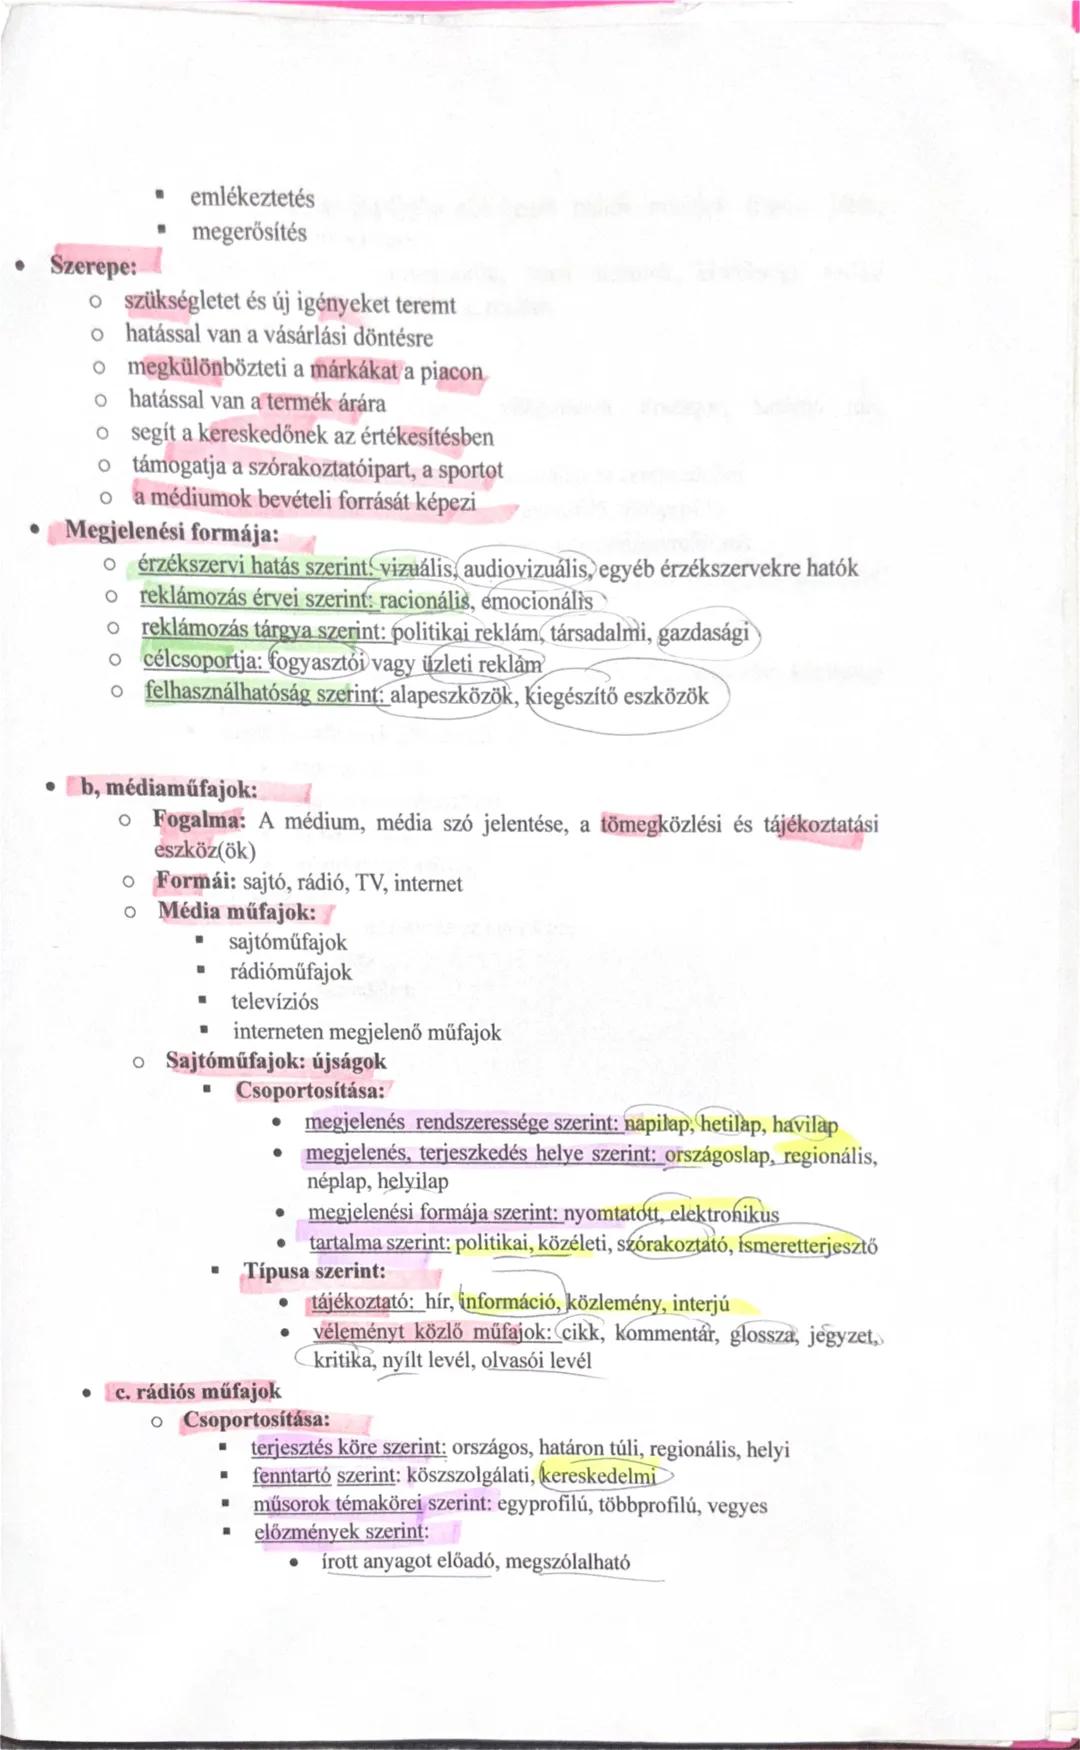 ▪ emlékeztetés
▪ megerősítés
• Szerepe:
o szükségletet és új igényeket teremt
o hatással van a vásárlási döntésre
o megkülönbözteti a márkákat a piacon
o hatással van a termék árára
o segít a kereskedőnek az értékesítésben
o támogatja a szórakoztatóipart, a sportot
o a médiumok bevételi forrását képezi
• Megjelenési formája:
o érzékszervi hatás szerint: vizuális, audiovizuális, egyéb érzékszervekre hatók
o reklámozás érvei szerint: racionális, emocionális
o reklámozás tárgya szerint: politikai reklám, társadalmi, gazdasági
o célcsoportja: fogyasztói vagy üzleti reklám
o felhasználhatóság szerint: alapeszközök, kiegészítő eszközök
• b, médiaműfajok:
o Fogalma: A médium, média szó jelentése, a tömegközlési és tájékoztatási
eszköz(ök)
o Formái: sajtó, rádió, TV, internet
o Média műfajok:
▪ sajtóműfajok
▪ rádióműfajok
▪ televíziós
▪ interneten megjelenő műfajok
o Sajtóműfajok: újságok
▪ Csoportosítása:
• megjelenés rendszeressége szerint: napilap, hetilap, havilap
• megjelenés, terjeszkedés helye szerint: országoslap, regionális,
néplap, helyilap
• megjelenési formája szerint: nyomtatott, elektronikus
• tartalma szerint: politikai, közéleti, szórakoztató, ismeretterjesztő
▪ Típusa szerint:
• tájékoztató: hír, információ, közlemény, interjú
• véleményt közlő műfajok: cikk, kommentár, glossza, jegyzet,
kritika, nyílt levél, olvasói levél
• c. rádiós műfajok
o Csoportosítása:
▪ terjesztés köre szerint: országos, határon túli, regionális, helyi
▪ fenntartó szerint: köszszolgálati, kereskedelmi
▪ műsorok témakörei szerint: egyprofilú, többprofilú, vegyes
▪ előzmények szerint:
• írott anyagot előadó, megszólalható